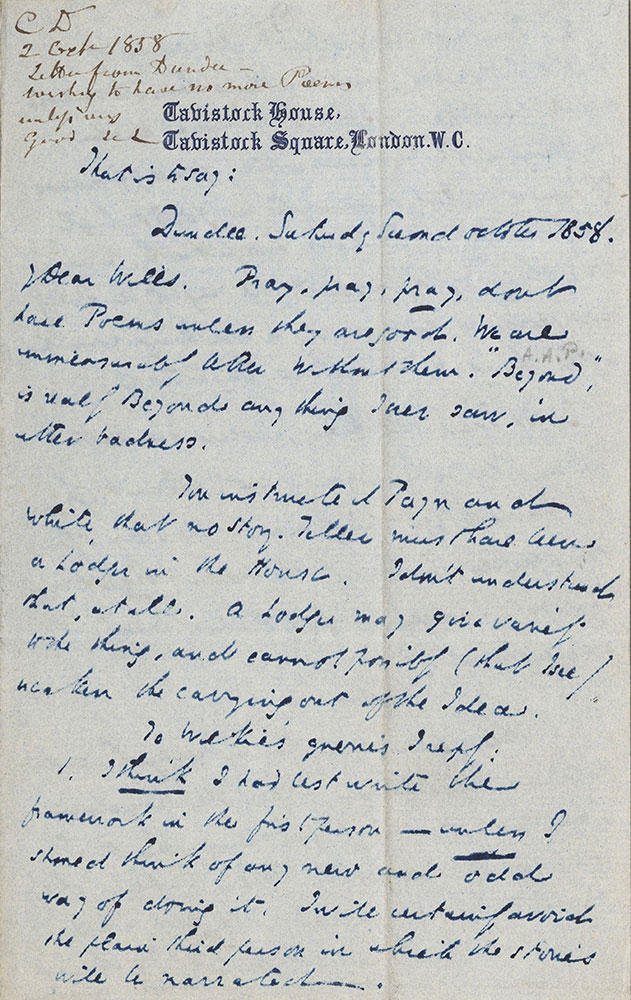 C D
2 Oct 1858
Letter from Dundee –
wishing to have no more Poems
unless very
Good
Tavistock House,
Tavistock Square, London. W.C.
That is to say:
Dundee. Saturday Second October 1858.
My Dear Wills. Pray, pray, pray, don't
have Poems unless they are good. We are
immeasurably better without them. "Beyond,"
A.A.P.
is really Beyond anything I ever saw, in
utter badness.
You instructed Payn and
White, that no story-Teller must have been
a Lodger in the House. I don't understand
that, at all. A Lodger may give variety
to the thing, and cannot possibly (that I see)
weaken the carrying out of the Idea.
To Wilkie's queries I reply:
1. I think I had best write the
framework in the first person — unless I
should think of any new and odd
way of doing it. I will certainly avoid
the plain third person in which the stories
will be narrated —.